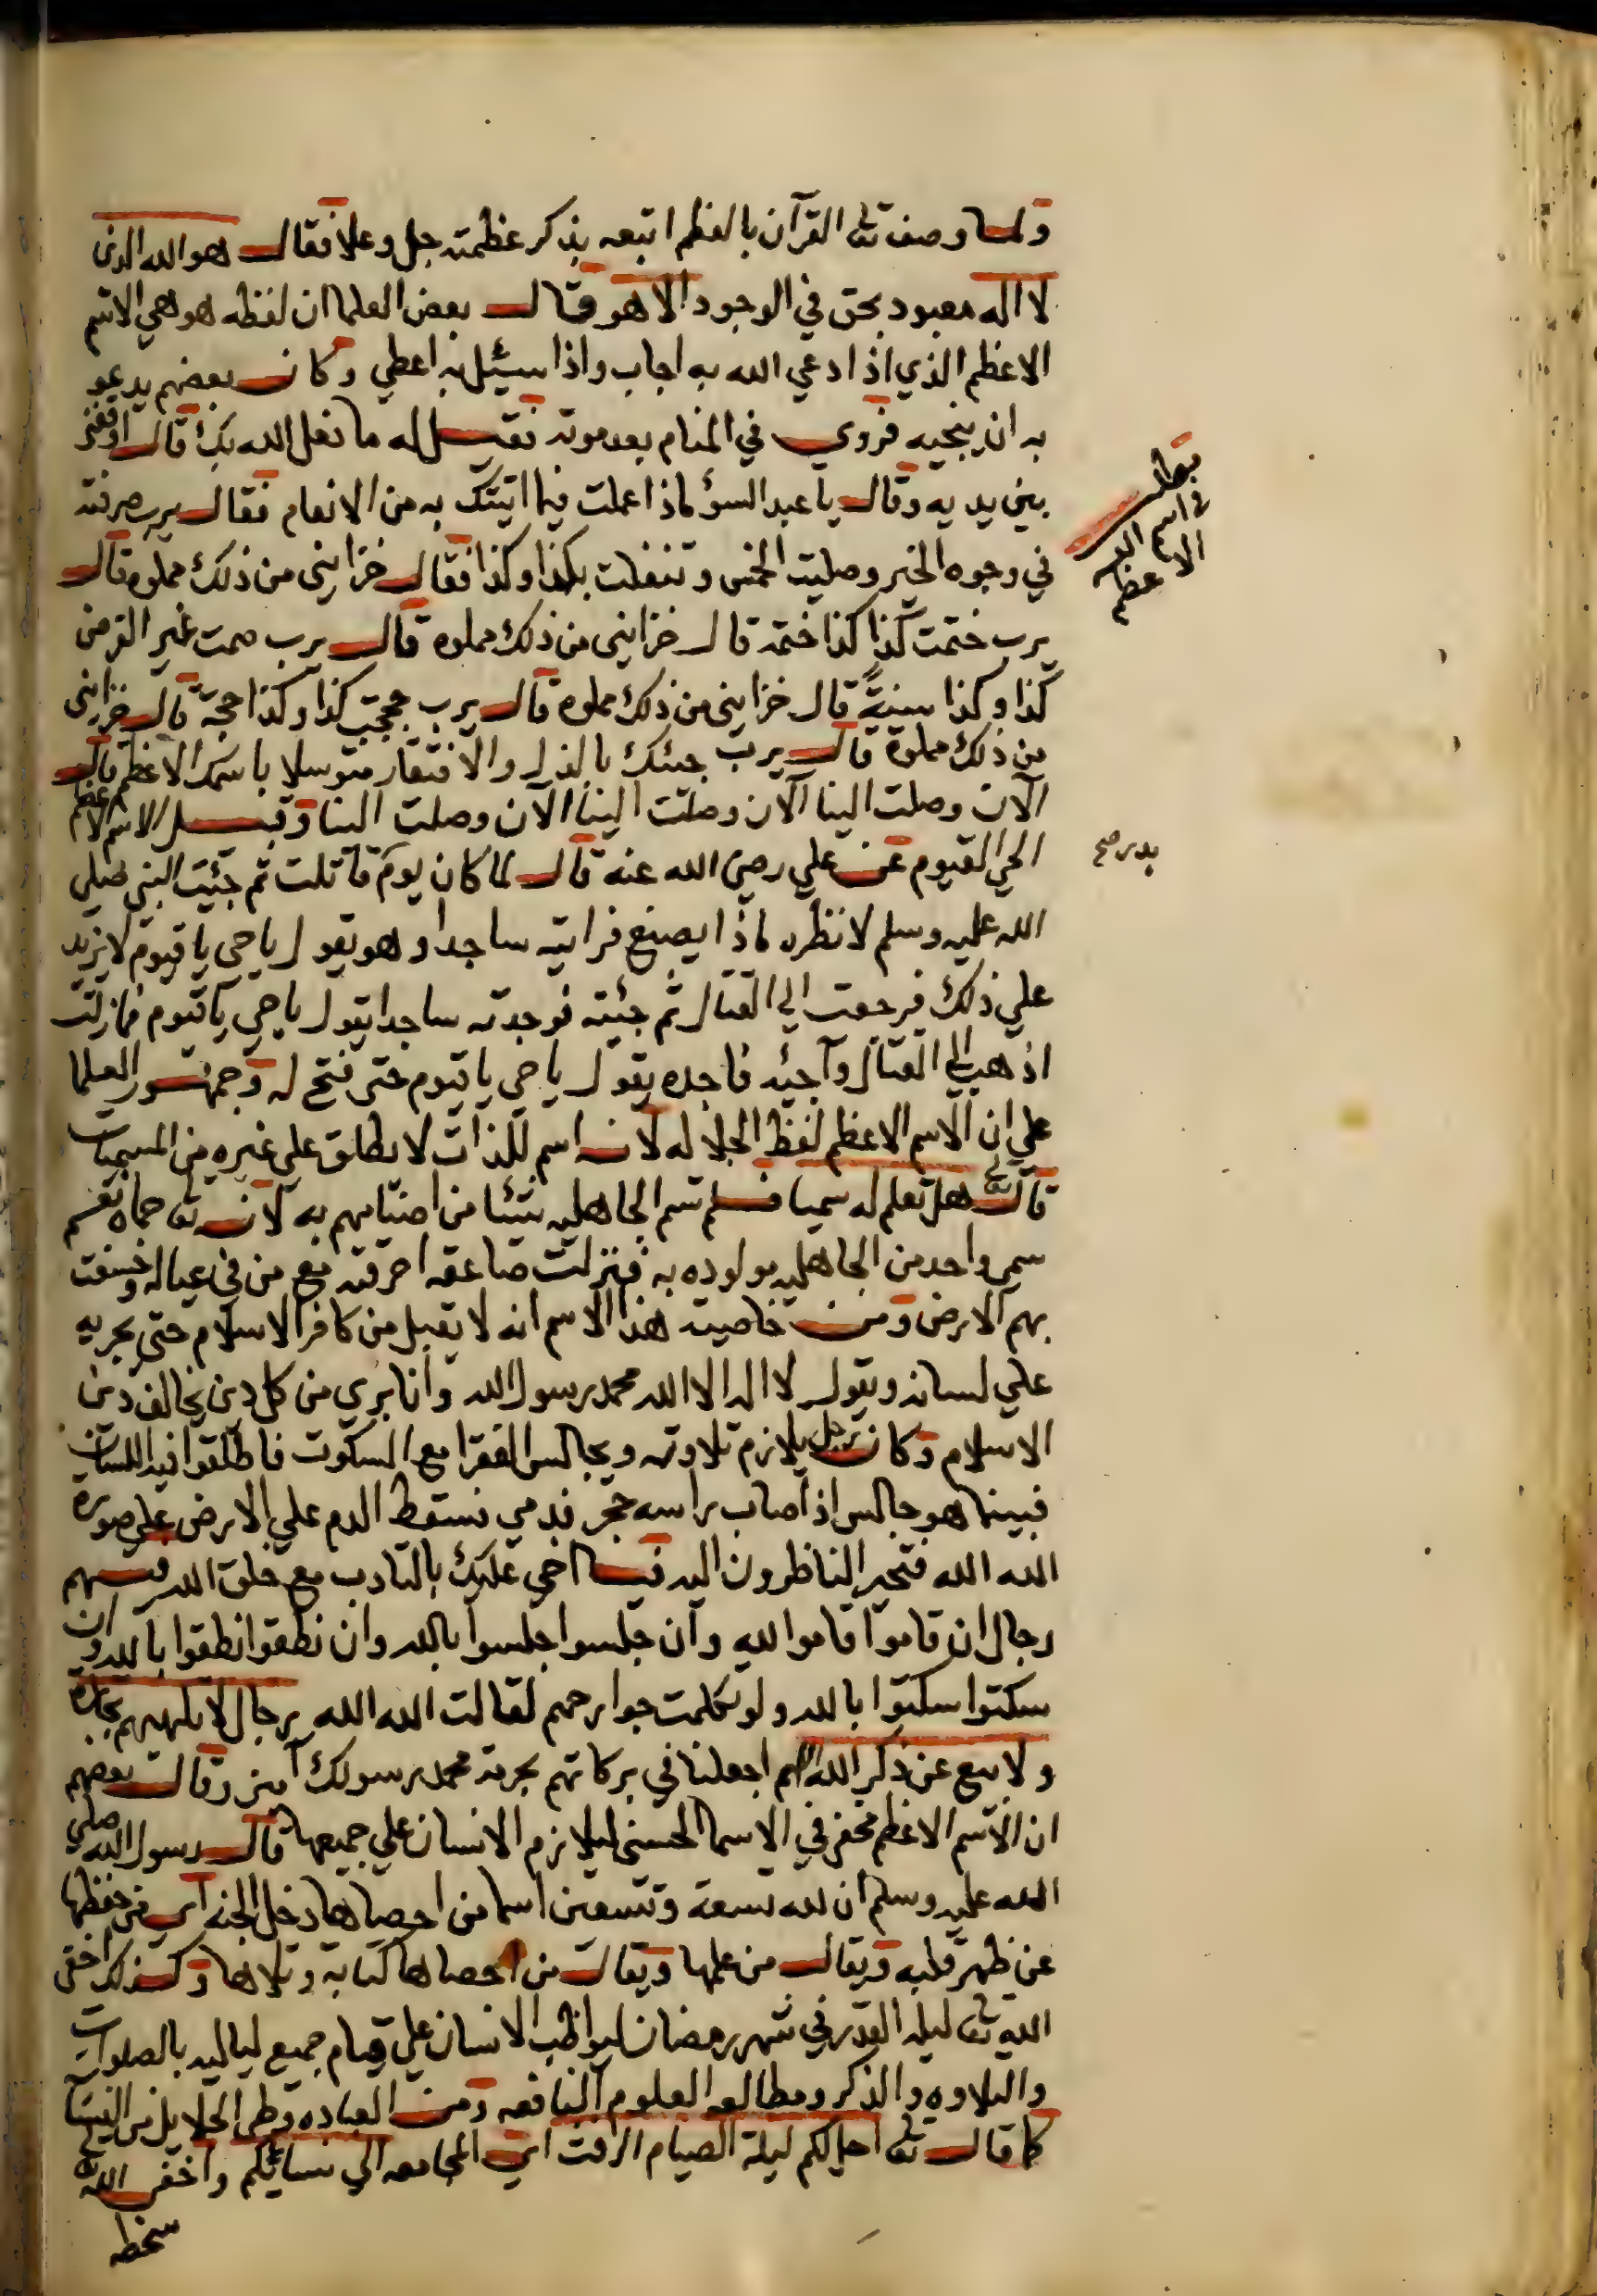 ولما وصف تعالى القرآن بالعظم اتبعه بذكر عظمته جل وعلا فقال هو الله الذى
لا اله معبود بحق في الوجود الا هو وقال بعض العلما ان لفظه هو هي الاسم
الاعظم الذي اذا دعي الله به اجاب واذا سيئل به اعطي وكان بعضهم يدعو
به ان ينجيه فروي في المنام بعد موته فقيل له ما فعل الله بك قال اوقفني
بين يديه وقال يا عبد السؤ ماذا عملت فيما اتيتك به من الانعام فقال يرب صرفته
في وجوه الخير وصليت الخمس وتنفلت بكذا وكذا فقال خزايني من ذلك مملوه قال
يرب ختمت كذا كذا ختمة قال خزايني من ذلك مملوه قال يرب صمت غير الفرض
كذا وكذا سنيةً قال خزايني من ذلك مملوه قال يرب حججت كذا وكذا حجة قال خزايني
من ذلك مملوة قال يرب جئتك بالذل والافتقار متوسلا باسمك الاعظم قال
الآن وصلت الينا الآن وصلت الينا الآن وصلت الينا وقيل الاسم الاعظم
الحي القيوم عن علي رضي الله عنه قال لما كان يوم قاتلت ثم جئيت النبي صلى
الله عليه وسلم لانظره ماذا يصنع فرايته ساجدا وهو يقول ياحي يا قيوم لا يزيد
علي ذلك فرجعت الي القتال ثم جئيته فوجدته ساجدا يقول ياحي يا قيوم فمازلت
اذهب الي القتال وآجيئه فاجده يقول ياحي يا قيوم حتى فتح له وجمهور العلما
علي ان الاسم الاعظم لفظ الجلاله لانه اسم للذات لا يطلق علي غيره من المسميات
قال تعالى هل تعلم له سميا فلم تسم الجاهليه شئيا من اصنامهم به لانه تعالى حماه نعم
سمي واحد من الجاهليه مولوده به فنزلت صاعقه احرقته مع من في عياله وخسفت
بهم الارض ومن خاصية هذا الاسم انه لا يقبل من كافر الاسلام حتى يجريه
علي لسانه ويقول لا اله الا الله محمد رسول الله وانا بري من كل دين يخالف دين
الاسلام وكان رجل يلازم تلاوته ويجالس الفقرا مع السكوت فاطلقوا فيه اللسان
فبينما هو جالس اذ اصاب راسه حجر فدمي فسقط الدم علي الارض علي صورة
الله الله فتحير الناظرون اليه فيا اخي عليك بالتادب مع خلق الله فيهم
رجال ان قاموا قاموا لله وان جلسوا جلسوا بالله وان نطقوا نطقوا بالله وان
سكتوا سكتوا بالله ولو تكلمت جوارحهم لقالت الله الله رجال لا تلهيهم تجارة
ولا بيع عن ذكر الله اللهم اجعلنا في بركاتهم بحرمة محمد رسولك آمين وقال بعضهم
ان الاسم الاعظم مخفي في الاسما الحسنى ليلازم الانسان علي جميعها قال رسول الله صلى
الله عليه وسلم ان لله تسعة وتسعين اسما من احصاها دخل الجنه اي من حفظها
عن ظهر قلبه ويقال من علمها ويقال من احصاها كتابة وتلاها وكذلك اخفى
الله تعالى ليلة القدر في شهر رمضان ليواظب الانسان علي قيام جميع لياليه بالصلوات
والتلاوه والذكر ومطالعه العلوم النافعه ومن العباده وطي الحلايل من النسا
كما قال تعالى احل لكم ليلة الصيام الرفث اي المجامعه الي نسائكم واخفى الله
سخطه
مطلب
في اسم الله
الاعظم
بدر صح